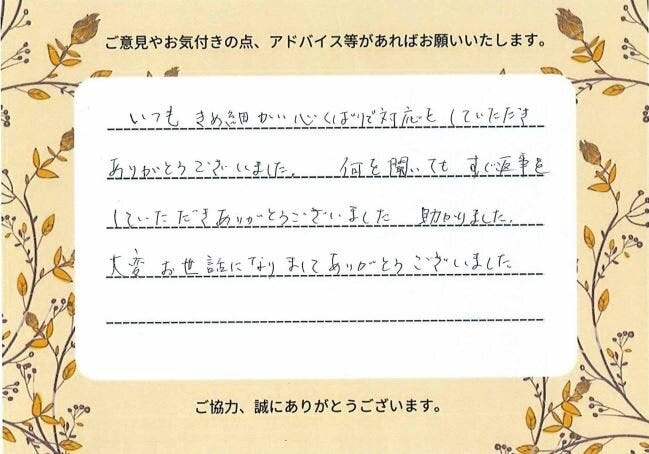 ご意見やお気付きの点、アドバイス等があればお願いいたします。
いつも きめ細かい心くばりで対応をしていただき
ありがとうございました。 何を聞いても すぐ返事を
していただきありがとうございました 助かりました。
大変 お世話になりましてありがとうございました。
ご協力、誠にありがとうございます。